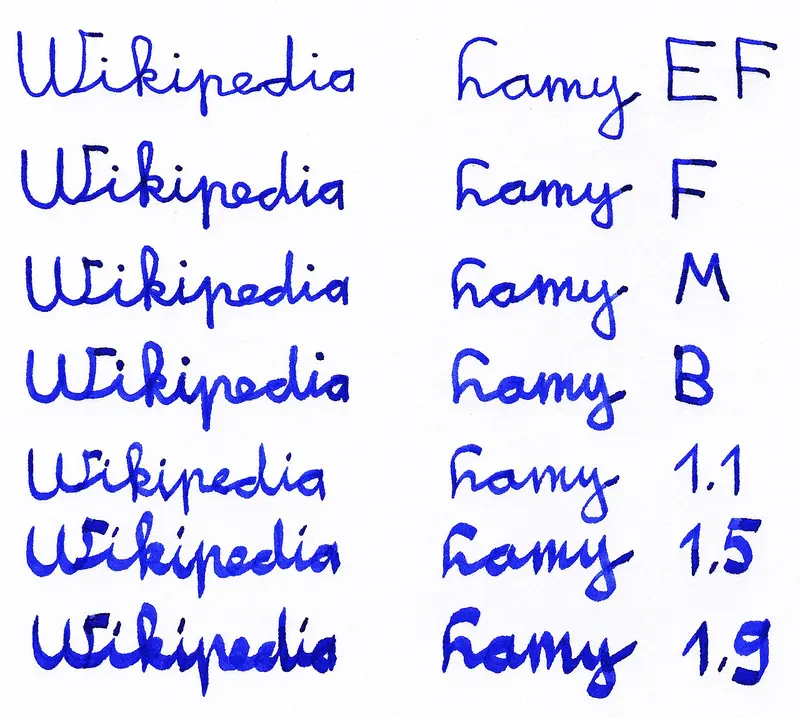 Wikipedia Lamy EF
Wikipedia Lamy F
Wikipedia Lamy M
Wikipedia Lamy B
Wikipedia Lamy 1.1
Wikipedia Lamy 1.5
Wikipedia Lamy 1.9